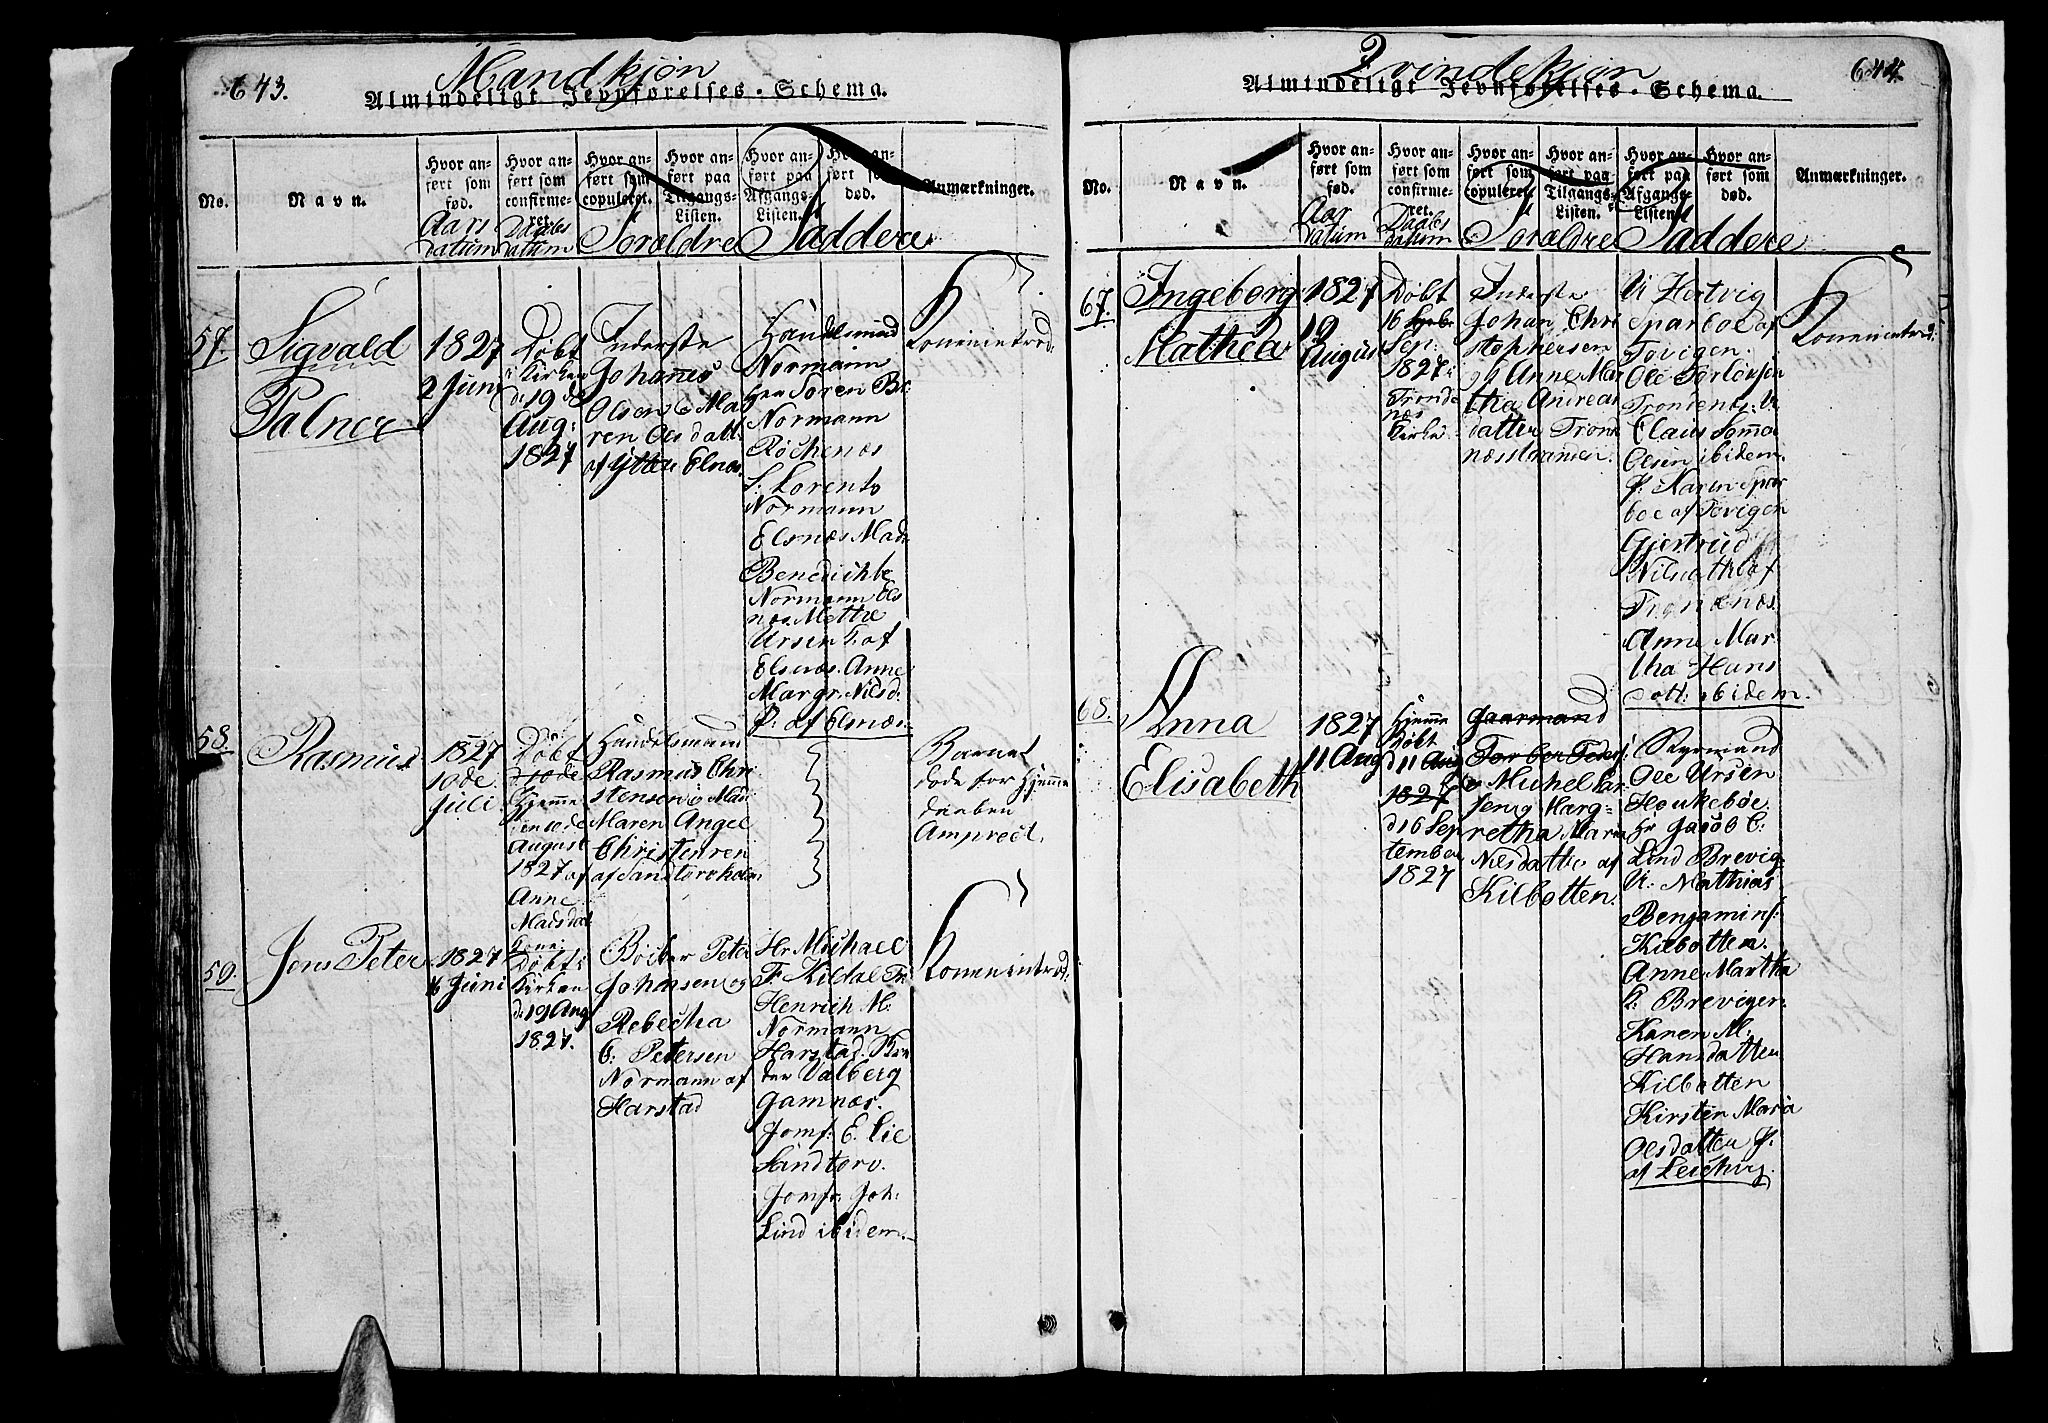 643.
Mandkjøn
Almindeligt Jevnførelses-Schema.
No.
Navn.
Hvor an-
ført som
fød.
Aars
Datum
Hvor an-
ført som
confirme-
ret.
Daabs
Datum
Hvor an-
ført som
copuleret.
Hvor an-
ført paa
Tilgangs-
Listen.
Forældre
Hvor an-
ført paa
Afgangs-
Listen.
Hvor an-
ført som
død.
Faddere
Anmærkninger.
57.
Sigvald
Palner
1827
2 Juni
Døbt
i Kirken
d 19 de
Aug:
1827
Inderste
Johannes
Olsen & Ma
ren Olsdatt.
af Ytter Elnes
Handelsmand
Normann
Hr Søren Br.
Normann
Røchenæs
S: Lorents
Normann
Elsnæs Mad:
Benedichte
Normann Els
næs. Mette
Ursen F. af
Elsnæs. Anne
Margr: Nilsd:
P: af Elsnæs.
Kommentred:
58.
Rasmus
1827
10de
Juli
Døbt
Hjemme
den 10de
August
1827 af
Anne
Madsdat
Handelsmand
Rasmus Chri
stensen & Mad
Maren Angel
Christensen
af Sandtorvholm
Barnet
døde før Hjemme
daaben
Amprøct.
59.
Jens Peter
1827
16 Juni
Døbt i
Kirken
d: 19 Aug
1827.
Peter
Johansen og
Rebecha
C: Petersen
Normann af
Harstad
Hr Michael
F. Kildal
Henrich M:
Normann
Harstad.
Valberg
Gamnæs.
Jomf: E. Lie
Sandtorv.
Jomfr: Joh:
Lind ibidem.
Kommentred:
644.
Qvindekjøn
Almindeligt Jevnførelses-Schema.
No.
Navn.
Hvor an-
ført som
fød.
Aar
Datum
Hvor an-
ført som
confirme-
ret.
Daabs
Datum
Hvor an-
ført som
copuleret.
Hvor an-
ført paa
Tilgangs-
Listen.
Forældre
Hvor an-
ført paa
Afgangs-
Listen.
Hvor an-
ført som
død.
Faddere
Anmærkninger.
67.
Ingeborg
Mathea
1827
19
August
Døbt
16
Sep:
1827 i
Tronde
næs
Kirke
Inderste
Johan Chri
stophersen
og Anne Mar
tha Andreas
datter Trond
næsshavnen.
U Hertvig
Sparboe af
Tovigen.
Ole Torlovsen
Trondenes:
Claus
Olsen ibidem.
P: Maren Spar
boe af Tovigen
Gjertrud
Nilsdatt. af
Trondenæs
Anne Mar
tha Hans
datt: ibidem.
Kommentred:
68.
Anna
Elisabeth
1827
11 Aug
Hjemme
Døbt
d 11 Aug
1827
d 16 Sep
tember
1827
Gaarmand
Michel
Jens og Marg-
retha Maria
Nilsdatter af
Kilbotten.
Styrmand
Ole Ursen
Houkebøe
Hr Jacob C:
Lind Brevig
U: Mathias
Benjamins:
Kilbotten.
Anne Martha
P: Brevigen:
Karen M:
Hansdatter
Kilbotten
Kirsten Maria
Olsdatter P:
af